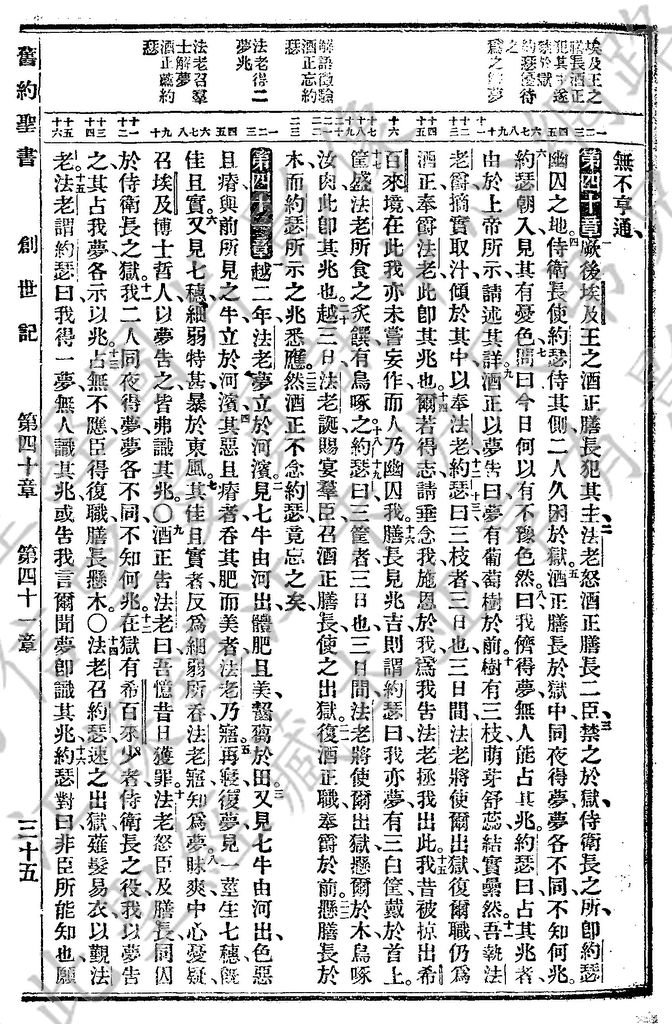 埃及王之
膳長酒正
犯其主遂
禁於獄
約瑟優待
之
爲之解夢
解語徵驗
酒正忘約
瑟
法老得二
夢兆
法老召羣
士解夢
酒正薦約
瑟
無不亨通
第四十章厥後埃及王之酒正膳長犯其主法老怒酒正膳長二臣禁之於獄侍衛長之所卽約瑟
幽囚之地侍衛長使約瑟侍其側二人久困於獄酒正膳長於獄中同夜得夢夢各不同不知何兆
約瑟朝入見其有憂色問曰今日何以有不豫色然曰我儕得夢無人能占其兆約瑟曰占其兆者
由於上帝所示請述其詳酒正以夢告曰夢有葡萄樹於前樹有三枝萌芽舒蕊結實纍然吾執法
老爵摘實取汁傾於其中以奉法老約瑟曰三枝者三日也三日間法老將使爾出獄復爾職仍爲
酒正奉爵法老此卽其兆也爾若得志請垂念我施恩於我爲我告法老拯我出此我昔被掠出希
百來境在此我亦未嘗妄作而人乃幽囚我膳長見兆吉則謂約瑟曰我亦夢夢有三白筐戴於首上
筐盛法老所食之炙饌有鳥啄之約瑟曰三筐者三日也三日間法老將使爾出獄懸爾於木鳥啄
汝肉此卽其兆也越三日法老誕賜宴羣臣召酒正膳長使之出獄復酒正職奉爵於前懸膳長於
木而約瑟所示之兆悉應然酒正不念約瑟竟忘之矣
第四十一章越二年法老夢立於河濱見七牛由河出體肥且美齧芻於田又見七牛由河出色惡
且瘠與前所見之牛立於河濱其惡且瘠者吞其肥而美者法老乃寤再寢復夢見一莖生七穗旣
佳且實又見七穗細弱特甚暴於東風其佳且實者反爲細弱所吞法老寤知爲夢昧爽中心憂疑
召埃及博士哲人以夢告之皆弗識其兆〇酒正告法老曰吾憶昔日獲罪法老怒臣及膳長同囚
於侍衛長之獄我二人同夜得夢夢各不同不知何兆在獄有希百來少者侍衛長之役我以夢告
之其占我夢各示以兆占無不應臣得復職膳長懸木〇法老召約瑟速之出獄薙髮易衣以覲法
老法老謂約瑟曰我得一夢無人識其兆或告我言爾聞夢卽識其兆約瑟對曰非臣所能知也願
舊約聖書 創世記 第四十章 第四十一章 三十五